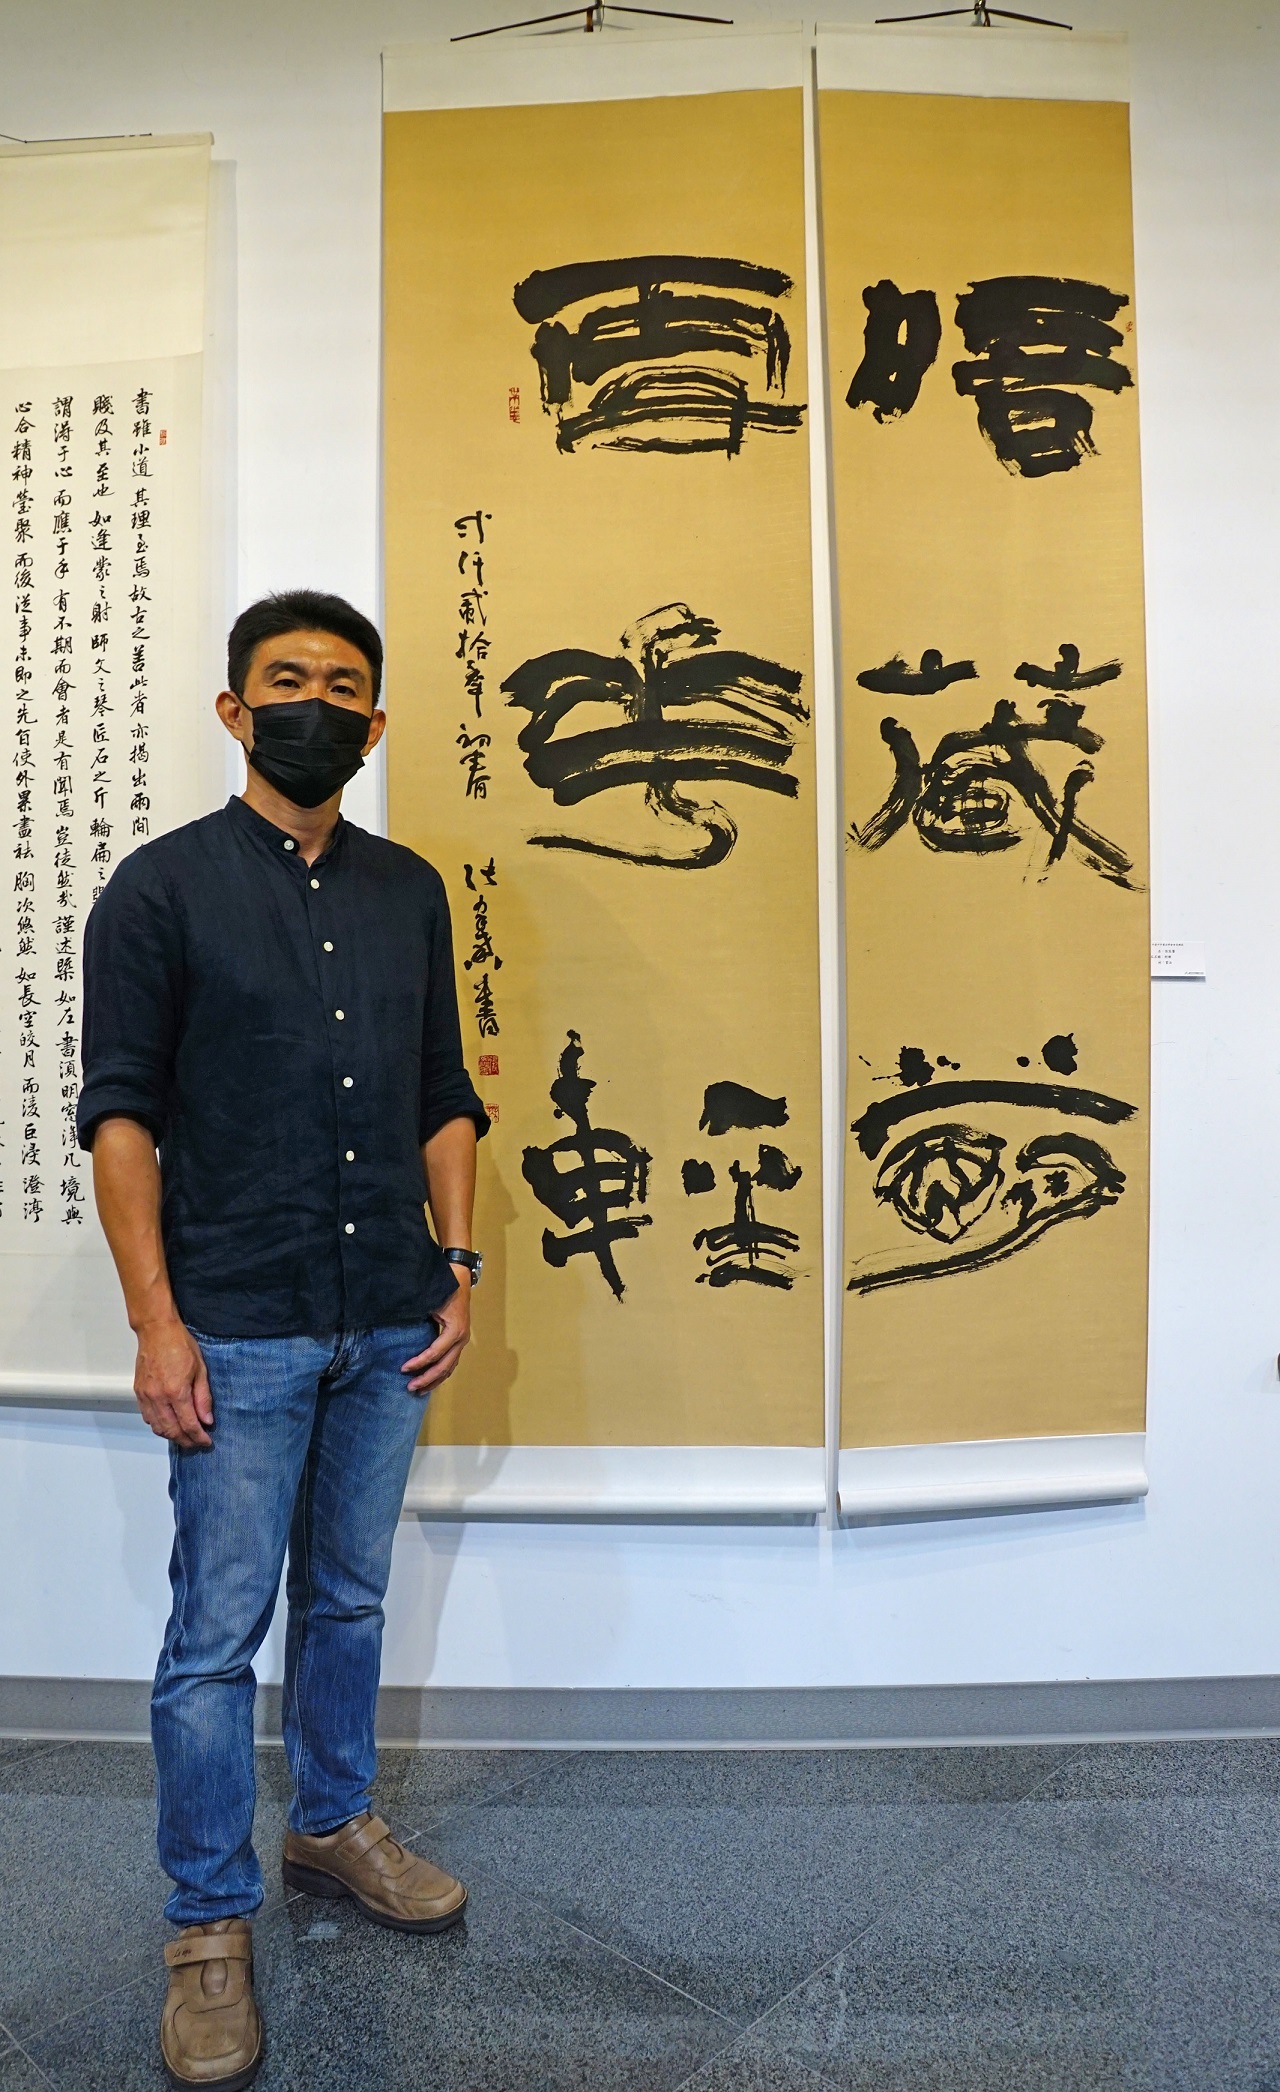 晤藏夢
雪華輕
弍仟貳拾年初春 張書
書雖小道其理至焉故古之善此者亦揭出兩間
賤及其至也如逢蒙之射師文之琴匠石之斤輪扁之
謂得于心而應于手有不期而會者是有聞焉豈徒然哉謹述槩如左書須明窓淨几境與
心合精神瑩聚而後從事未即之先自使外累盡祛胸次悠然如長空皎月而淩巨浸澄渟